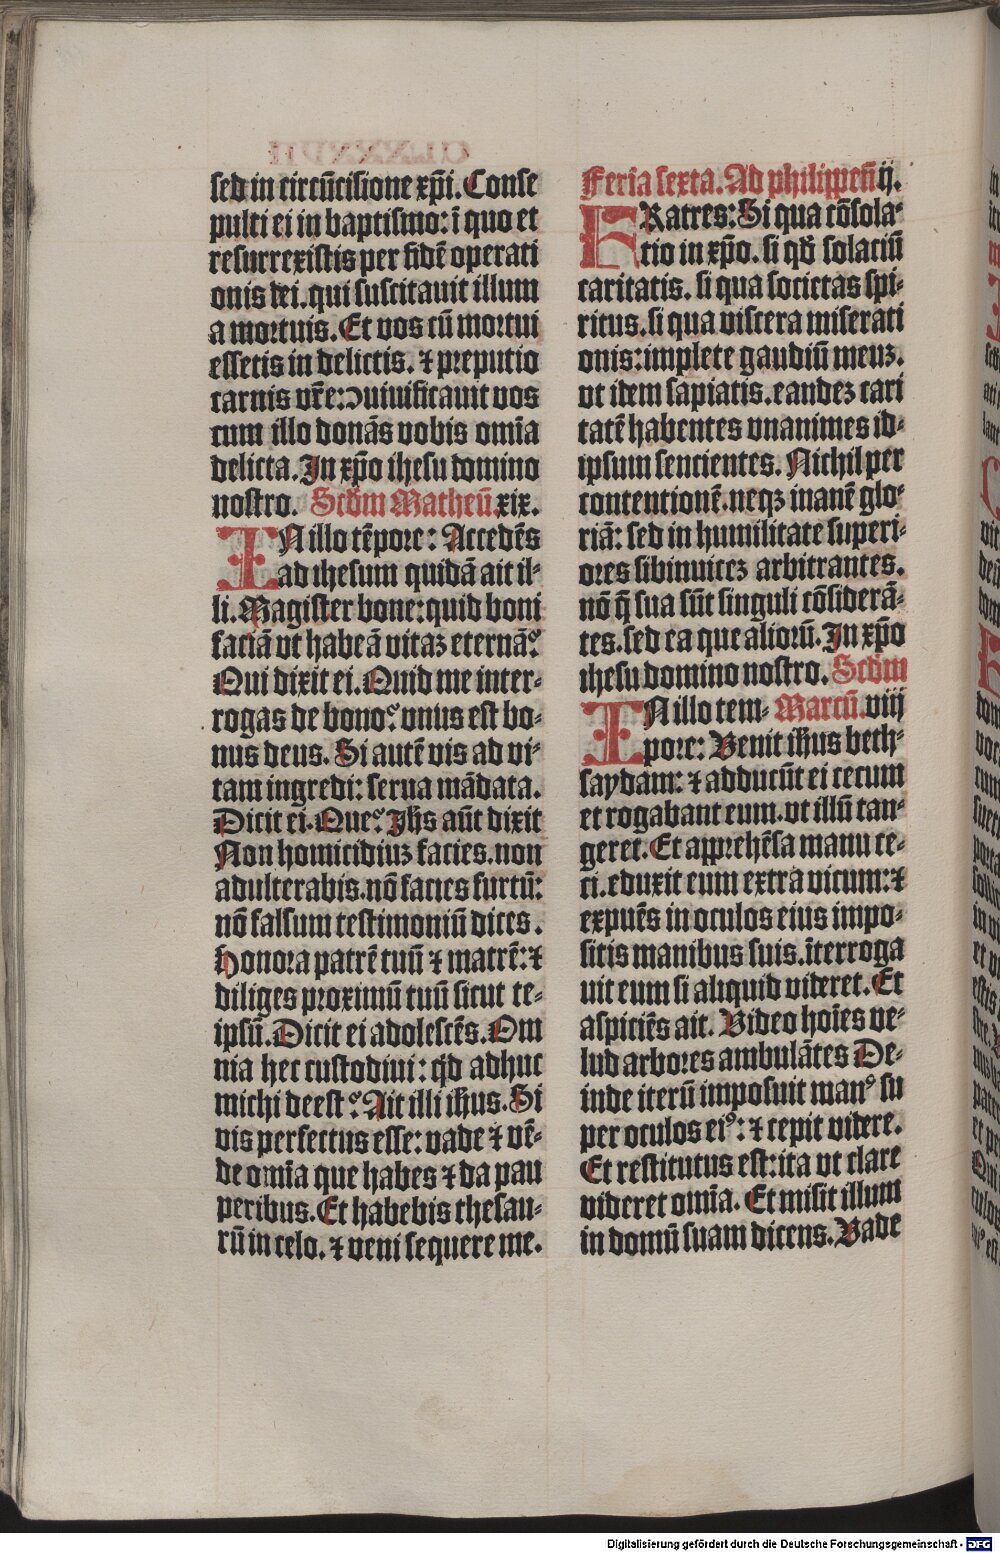 sed in circũcisione xp̃i. Conse
pulti ei in baptismo: ĩ quo et
resurrexistis per fidẽ operati
onis dei. qui suscitauit illum
a mortuis. Et vos cũ mortui
essetis in delictis. ⁊ preputio
carnis vr̃e: ↄuiuificauit vos
cum illo donãs vobis om̃ia
delicta. In xp̃o ihesu domino
nostro. Scd̃m Matheũ. xix.
IN illo tẽpore: Accedẽs
ad ihesum quidã ait il⸗
li. Magister bone: quid boni
faciã vt habeã vitaꝫ eternã?
Qui dixit ei. Quid me inter⸗
rogas de bono? vnus est bo⸗
nus deus. Si autẽ vis ad vi⸗
tam ingredi: serua mãdata.
Dicit ei. Que? Jh̃s aũt dixit
Non homicidiuꝫ facies. non
adulterabis. nõ facies furtũ:
nõ falsum testimoniũ dices.
Honora patrẽ tuũ ⁊ matrẽ: ⁊
diliges proximũ tuũ sicut te⸗
ipsũ. Dicit ei adolescẽs. Om
nia hec custodiui: qd̃ adhuc
michi deest? Ait illi ih̃us. Si
vis perfectus esse: vade ⁊ vẽ⸗
de om̃ia que habes ⁊ da pau
peribus. Et habebis thesau⸗
rũ in celo. ⁊ veni sequere me.
Feria sexta. Ad philippeñ ij.
FRatres: Si qua cõsola⸗
tio in xp̃o. si qd̃ solaciũ
caritatis. si qua societas spi⸗
ritus. si qua viscera miserati
onis: implete gaudiũ meuꝫ.
vt idem sapiatis. eandeꝫ cari
tatẽ habentes vnanimes id⸗
ipsum sencientes. Nichil per
contentionẽ. neqꝫ inanẽ glo⸗
riã: sed in humilitate superi⸗
ores sibinuiceꝫ arbitrantes.
nõ q̃ sua sũt singuli cõsiderã⸗
tes. sed ea que aliorũ. In xp̃o
ihesu domino nostro. Scd̃m
IN illo tem⸗ Marcũ. viij
pore: Venit ih̃us beth⸗
saydam: ⁊ adducũt ei cecum
et rogabant eum. vt illũ tan⸗
geret. Et apprehẽsa manu ce⸗
ci. eduxit eum extra vicum: ⁊
expuẽs in oculos eius impo⸗
sitis manibus suis. ĩterroga
uit eum si aliquid videret. Et
aspiciẽs ait. Video hoĩes ve⸗
lud arbores ambulãtes De⸗
inde iterũ imposuit manꝰ su
per oculos eiꝰ: ⁊ cepit videre.
Et restitutus est: ita vt clare
videret om̃ia. Et misit illum
in domũ suam dicens. Vade
Digitalisierung gefördert durch die Deutsche Forschungsgemeinschaft - DFG